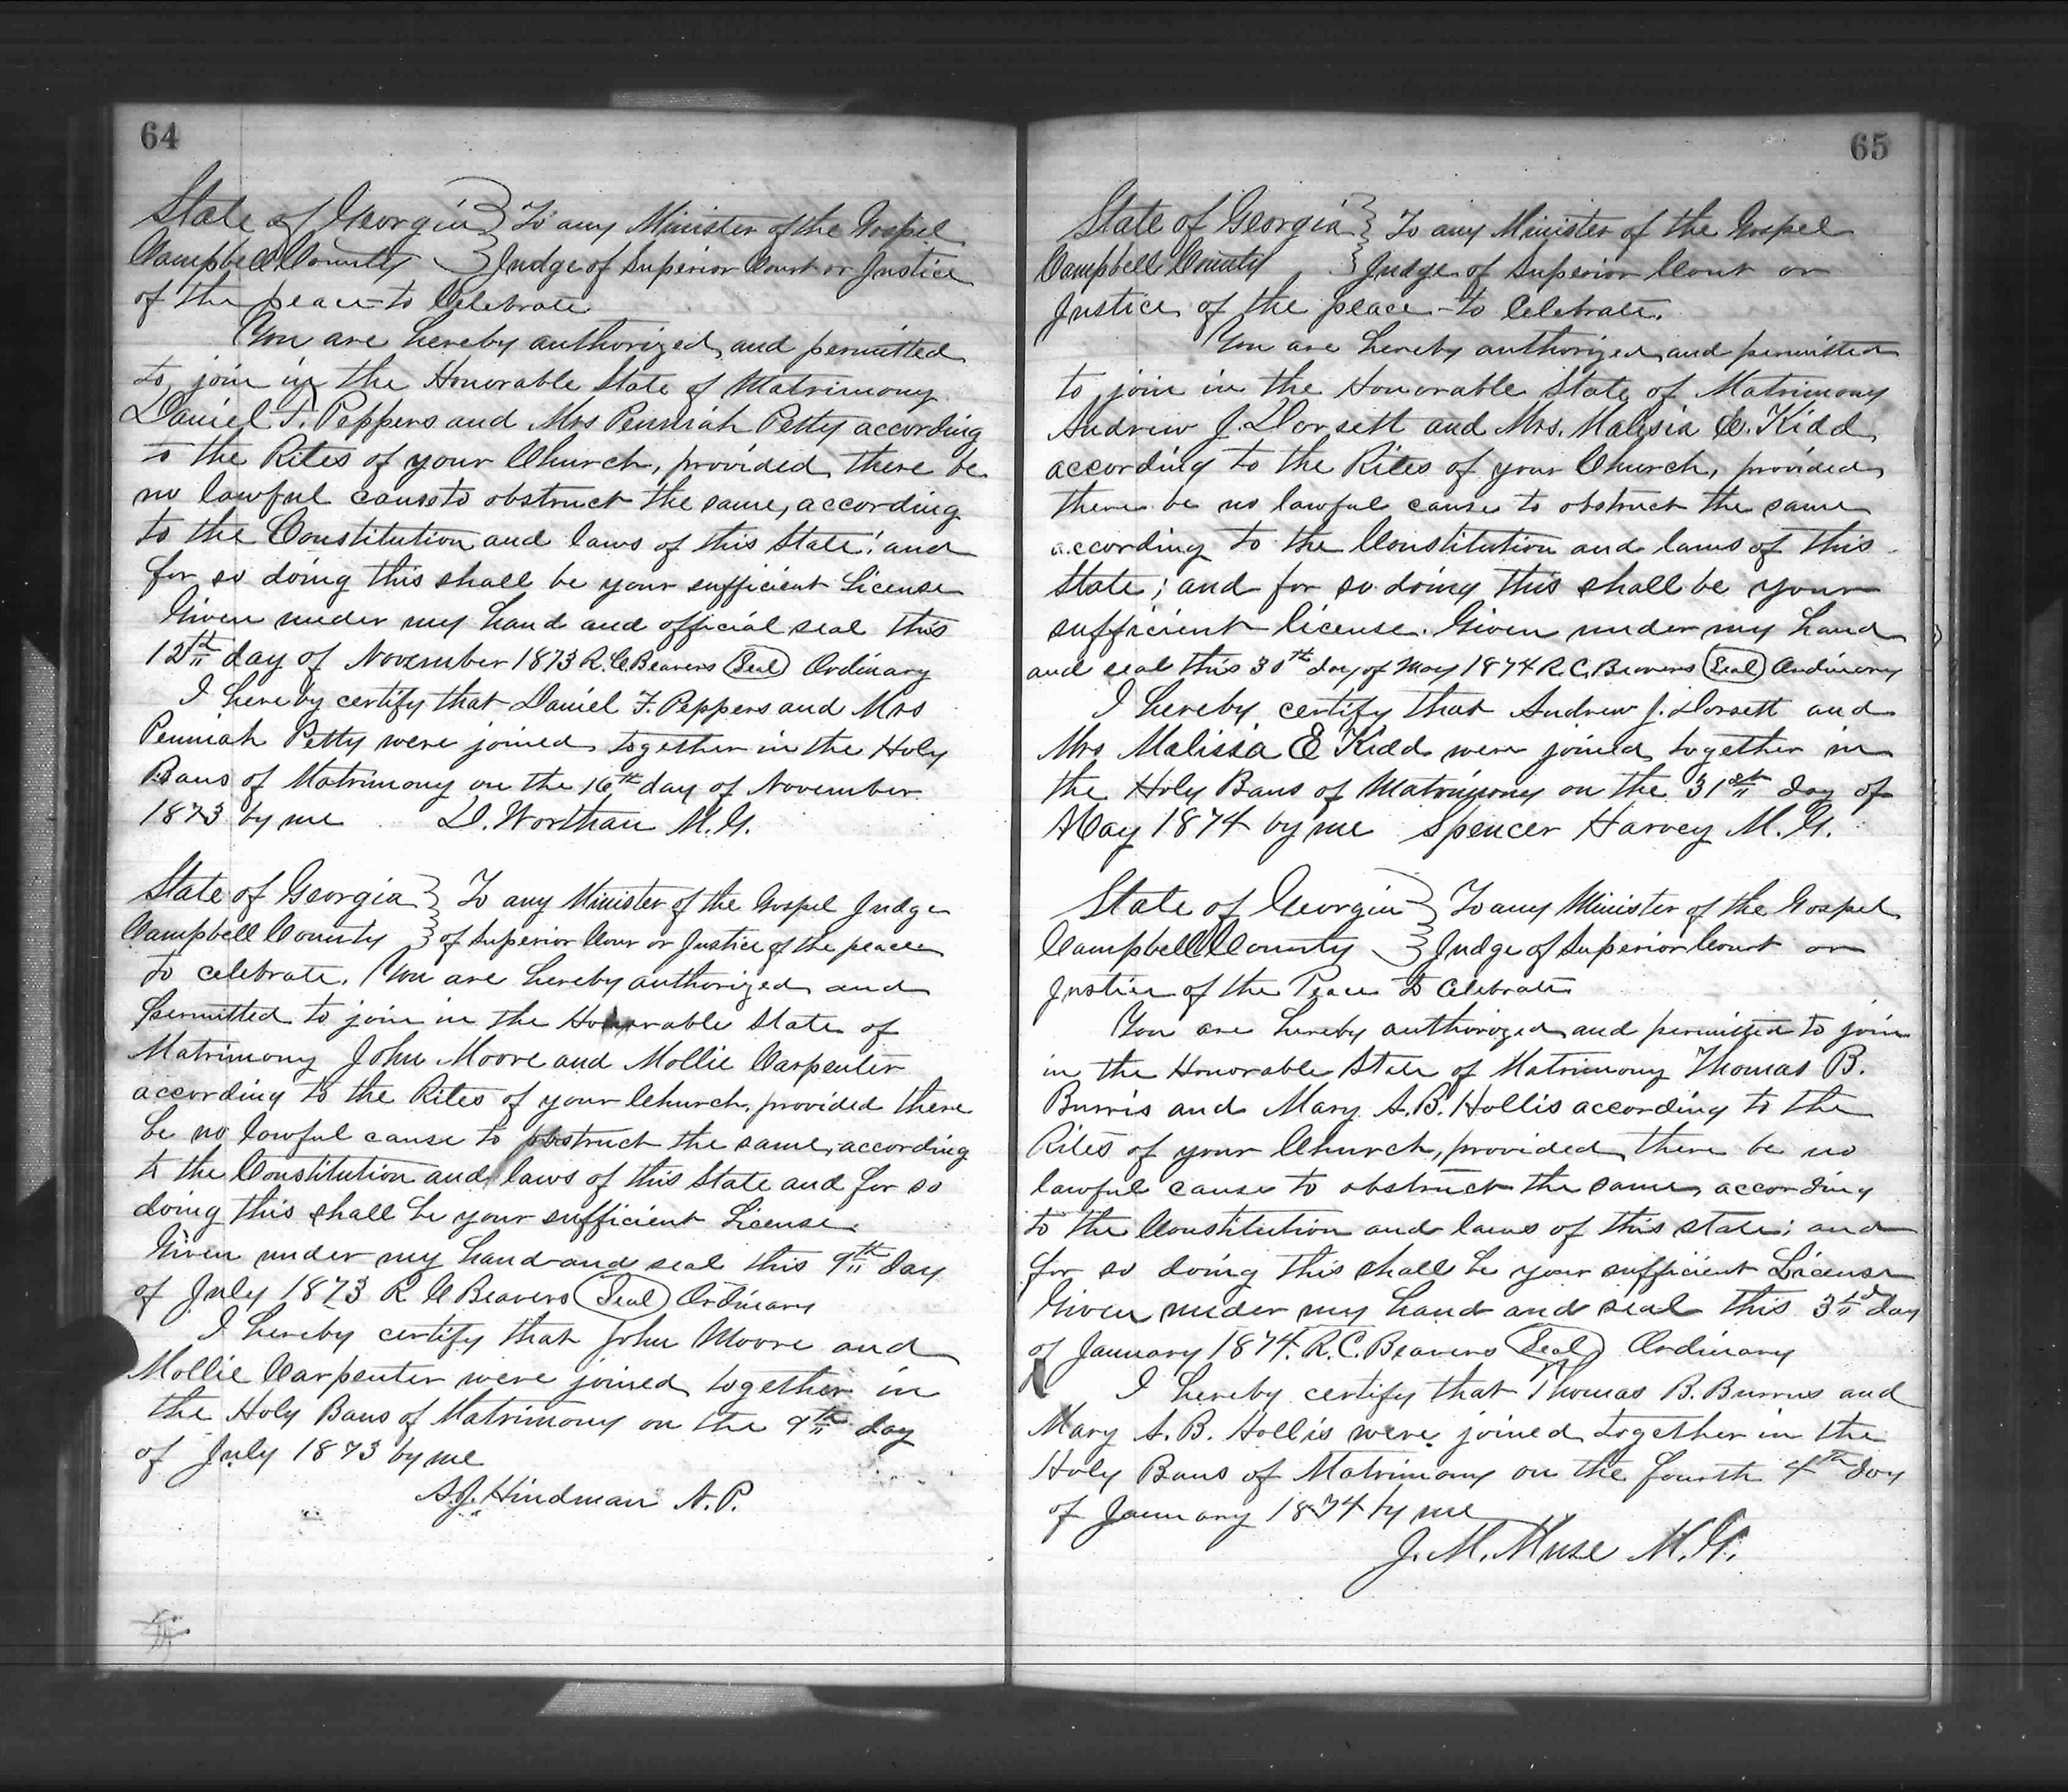 64
State of Georgia } To any Minister of the Gospel
Campbell County } Judge of Superior Court or Justice
of the peace to Celebrate
You are hereby authorized and permitted
to join in the Honorable State of Matrimony
Daniel F. Peppers and Mrs Penniah Petty according
to the Rites of your Church, provided there be
no lawful cause to obstruct the same, according
to the Constitution and laws of this State; and
for so doing this shall be your sufficient License
Given under my hand and official seal this
12th day of November 1873 R. C. Beavers (Seal) Ordinary
I hereby certify that Daniel F. Peppers and Mrs
Penniah Petty were joined together in the Holy
Bans of Matrimony on the 16th day of November
1873 by me D. Worthan M.G.
State of Georgia } To any Minister of the Gospel Judge
Campbell County } of Superior Cour or Justice of the peace
to celebrate. You are hereby authorized and
permitted to join in the Honorable State of
Matrimony John Moore and Mollie Carpenter
according to the Rites of your Church, provided there
be no lawful cause to obstruct the same, according
to the Constitution and laws of this State and for so
doing this shall be your sufficient License.
Given under my hand and seal this 9th day
of July 1873 R C Beavers (Seal) Ordinary
I hereby certify that John Moore and
Mollie Carpenter were joined together in
the Holy Bans of Matrimony on the 9th day
of July 1873 by me
A.J. Hindman N.P.
65
State of Georgia } To any Minister of the Gospel
Campbell County } Judge of Superior Court or
Justice of the peace - to Celebrate.
You are hereby authorized and permitted
to join in the Honorable State of Matrimony
Andrew J. Dorsett and Mrs. Malisia E. Kidd,
according to the Rites of your Church, provided
there be no lawful cause to obstruct the same
according to the Constitution and laws of this
State; and for so doing this shall be your
sufficient license. Given under my hand
and seal this 30th day of May 1874 R. C. Beavers (Seal) Ordinary
I hereby certify that Andrew J. Dorsett and
Mrs Malissa E Kidd were joined together in
the Holy Bans of Matrimony on the 31st day of
May 1874 by me Spencer Harvey M. G.
State of Georgia } To any Minister of the Gospel
Campbell County } Judge of Superior Court or
Justice of the Peace to Celebrate
You are hereby authorized and permitted to join
in the Honorable State of Matrimony Thomas B.
Burris and Mary A. B. Hollis according to the
Rites of your Church, provided there be no
lawful cause to obstruct the same, according
to the Constitution and laws of this state; and
for so doing this shall be your sufficient License
Given under my hand and seal this 3rd day
of January 1874. R. C. Beavers (Seal) Ordinary
I hereby certify that Thomas B. Burrus and
Mary A. B. Hollis were joined together in the
Holy Bans of Matrimony on the fourth 4th day
of January 1874 by me
J. M. Muse M. G.